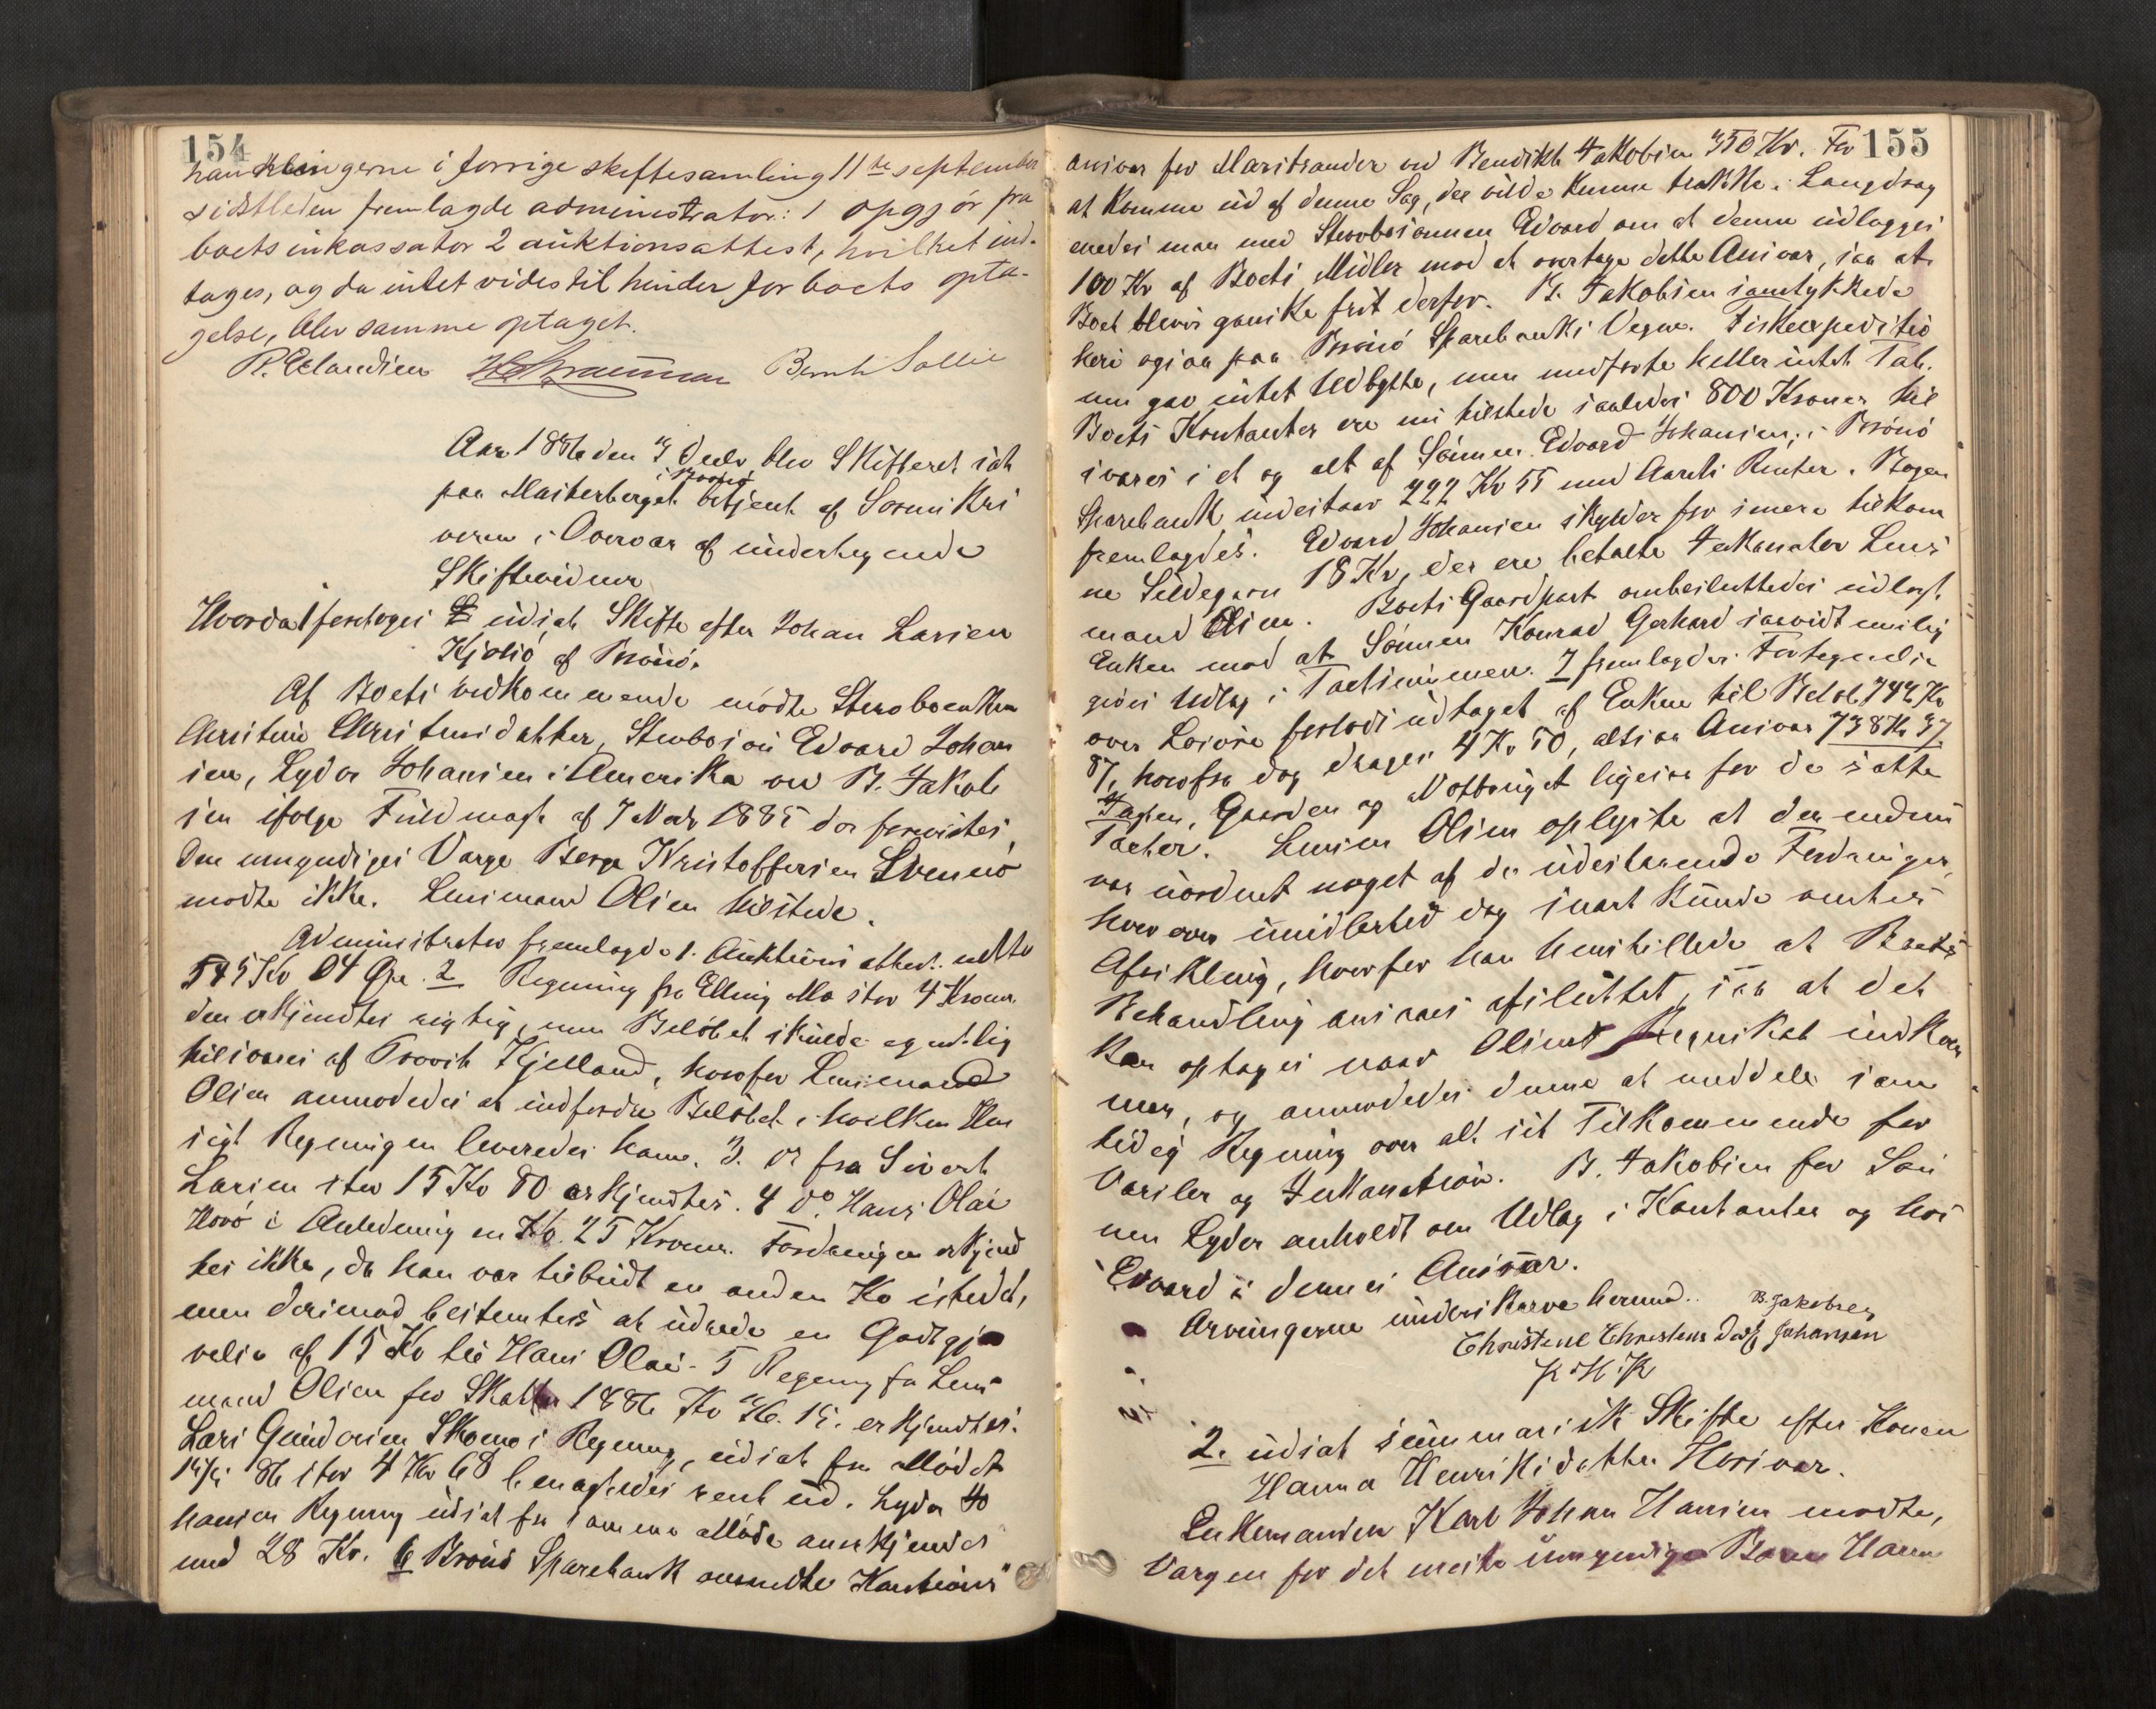 154
handlingerne i forrige skiftesamling 11te september
sidstleden fremlagde administrator: 1 opgjør fra
boets inkassator 2 auktionsattest, hvilket ind-
tages, og da intet vides til hinder for boets opta-
gelse, blev samme optaget.
Bernh Sollie
Aar 1886 den 3 Decbr. blev Skifteret sat
i Brønø
paa Mosterberget betjent af Sorenskri
veren i Overvær af undertegnede
Skiftevidner
Hvorda 1 foretoges udsat Skifte efter Johan Larsen
Kjølsø af Brønø.
Af Boets vedkommende mødte Stervboenken
Christine Christensdatter, Stervbosøn Edvard Johan
sen, Lyder Johansen i Amerika ved B. Jakob
sen ifølge Fuldmagt af 7 Novbr 1885 der forevistes,
den umyndiges Værge Berge Kristoffersen Svennø
mødte ikke. Lensmand Olsen tilstede.
Administrator fremlagde 1. Auktionsattest netto
545 Kr 04 Øre. 2 Regning fra Elling Mo stor 4 Kroner
den erkjendtes rigtig, men Beløbet skulde egentlig
tilsvares af Kjelland, hvorfor Lensmand
Olsen anmodedes at indfordre Beløbet i hvilken Hen
sigt Regningen leveredes ham. 3. Do fra Sivert
Larsen stor 15 Kr 80 erkjendtes. 4 Do. Hans Olai
Horø i Anledning en Ko. 25 Kroner. Fordringen erkjend
tes ikke, da han var tilbudt en anden Ko istedet,
men derimod bestemtes at udrede en Godtgjø
relse af 15 Kr til Hans Olai. 5 Regning fra Lens
mand Olsen for Skatter 1886 Kr erkjendtes.
Lars Gundersen Skomo's Regning, udsat fra Mødet
86 stor 4 Kr 68 benægtedes rent ud. Lyder Jo
hansen Regning udsat fra samme Møde anerkjendes
med 28 Kr. 6 Brønø Sparebank anmeldte Kautions
155
ansvar for Maritsander ved Bendikt Jakobsen 350 Kr. For
at komme ud af denne Sag, der vilde kunne trække i Langdrag
enedes man med Stervbosønnen Edvard om at denne udlægges
100 Kr af Boets Midler mod at overtage dette Ansvar, saa at
Boet blever ganske frit derfor. B. Jakobsen samtykkede
heri ogsaa paa Brønø Sparebanks Vegne. Fiskeexpeditio
nen gav intet Udbytte, men medførte heller intet Tab.
Boets Kontanter ere nu tilstede saaledes 800 Kroner til
svares i et og alt af Sønnen Edvard Johansen, i Brønø
Sparebank indestaar 222 Kr 55 med Aarets Renter. Bogen
fremlagdes. Edvard Johansen skylder for senere tilkom
ne Sildegarn 18 Kr, der ere betalte Inkassator Lens
mand Olsen. Boets Gaardpart ombesluttedes udlagt
Enken mod at Sønnen Konrad Gerhard saavidt mulig
gives Udlæg i Tætsummen. 7 fremlagdes Fortegnelse
over Løsøre forlods udtaget af Enken til Beløb 742 Kr
87, hvorfra dog drages 4 Kr 50, altsaa Ansvar 738 Kr 37
Gaarden og Notbruget ligesaa for de satte
Taxter. Lensm Olsen oplyste at der endnu
var uordnet noget af de udestaaende Fordringer,
hvorover imidlertid dog snart kunde ventes
Afvikling, hvorfor han henstillede at Boets
Behandling ansaaes afsluttet, saa at det
kan optages naar Olsens Regnskab indkom
mer, og anmodedes denne at meddele sam
tidig Regning over alt sit Tilkommende for
Varsler og Inkassation. B. Jakobsen for Søn
nen Lyder anholdt om Udlæg i Kontanter og hos
Edvard i dennes Ansvar.
Arvingerne underskreve hermed. B. Jakobsen
Christene Christensdatt Johansen
2. udsat summarisk Skifte efter Konen
Hanna Henriksdatter Horsvær.
Enkemanden Karl Johan Hansen mødte,
Værgen for det meste umyndige Barn Hans